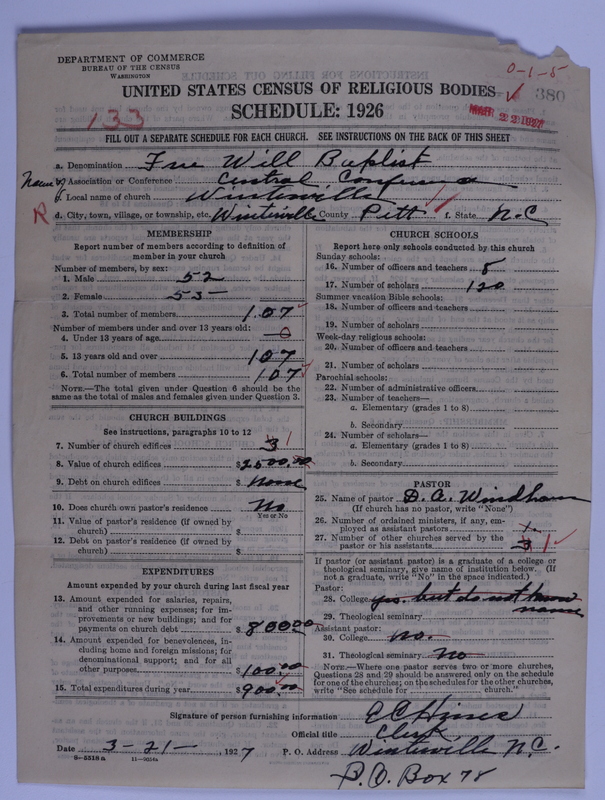 DEPARTMENT OF COMMERCE
BUREAU OF THE CENSUS
WASHINGTON
0-1-5
UNITED STATES CENSUS OF RELIGIOUS BODIES
380
133
SCHEDULE: 1926
MAR 22 1927
FILL OUT A SEPARATE SCHEDULE FOR EACH CHURCH. SEE INSTRUCTIONS ON THE BACK OF THIS SHEET
a. Denomination Free Will Baptist
Name of Association or Conference Central Conference
Local name of church Winterville
R d. City, town, village, or township, etc. Winterville County Pitt f. State N-C
MEMBERSHIP
Report number of members according to definition of
member in your church
Number of members, by sex:
1. Male 52
2. Female 55
3. Total number of members 107
Number of members under and over 13 years old:
4. Under 13 years of age 0
5. 13 years old and over 107
6. Total number of members 107
NOTE.—The total given under Question 6 should be
same as the total of males and females given under Question 3.
CHURCH BUILDINGS
See instructions, paragraphs 10 to 12
7. Number of church edifices 3 1
8. Value of church edifices $2500.00
9. Debt on church edifices $ None
10. Does church own pastor's residence? No
Yes or No
11. Value of pastor's residence (if owned by
church) $
12. Debt on pastor's residence (if owned by
church) $
EXPENDITURES
Amount expended by your church during last fiscal year
13. Amount expended for salaries, repairs,
and other running expenses; for im-
provements or new buildings; and for
payments on church debt $800.00
14. Amount expended for benevolences, in-
cluding home and foreign missions; for
denominational support; and for all
other purposes $100.00
15. Total expenditures during year $900.00
CHURCH SCHOOLS
Report here only schools conducted by this church
Sunday schools:
16. Number of officers and teachers 8
17. Number of scholars 120
Summer vacation Bible schools:
18. Number of officers and teachers
19. Number of scholars
Week-day religious schools:
20. Number of officers and teachers
21. Number of scholars
Parochial schools:
22. Number of administrative officers
23. Number of teachers—
a. Elementary (grades 1 to 8)
b. Secondary
24. Number of scholars—
a. Elementary (grades 1 to 8)
b. Secondary
PASTOR
25. Name of pastor D. A. Windham
(If church has no pastor, write "None")
26. Number of ordained ministers, if any, em-
ployed as assistant pastors
27. Number of other churches served by the
pastor or his assistants 3 1
If pastor (or assistant pastor) is a graduate of a college or
theological seminary, give name of institution below. (If
not a graduate, write "No" in the space indicated.)
Pastor:
28. College yes. but do not know
name
29. Theological seminary
Assistant pastor:
30. College no.
31. Theological seminary No
NOTE.—Where one pastor serves two or more churches,
Questions 28 and 29 should be answered only on the schedule
for one of the churches; on the schedules for the other churches,
write "See schedule for church."
Signature of person furnishing information E C Hines
Official title Clerk
Date 3-21-, 1927 P. O. Address Winterville N.C.
8-5518a 11-9054a
P.O. Box 78